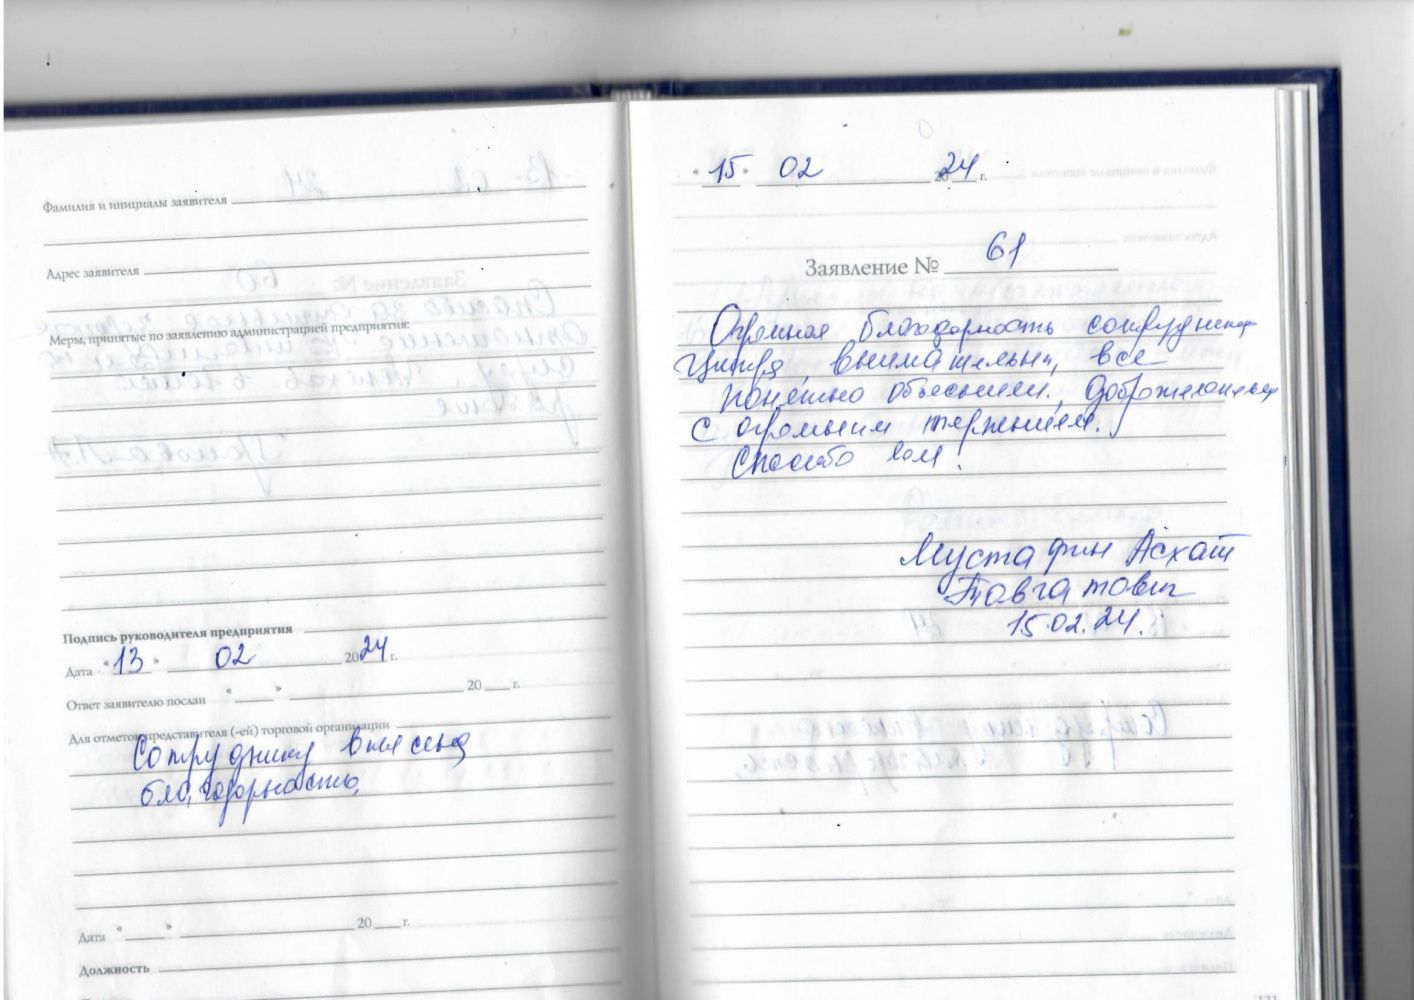 Фамилия и инициалы заявителя
Адрес заявителя
Меры, принятые по заявлению администрацией предприятия:
Подпись руководителя предприятия
Дата « 13 » 02 2024 г.
Ответ заявителю послан « » 20 г.
Для отметок представителя (-ей) торговой организации
Сотруднику внесена
благодарность.
Дата « » 20 г.
Должность
« 15 » 02 2024 г.
Заявление № 61
Огромная благодарность сотрудникам
внимательны, все
понятно объяснили, доброжелательны
с огромным терпением.
Спасибо вам!
Мустафин Асхат
Тавгатович
15.02.24.